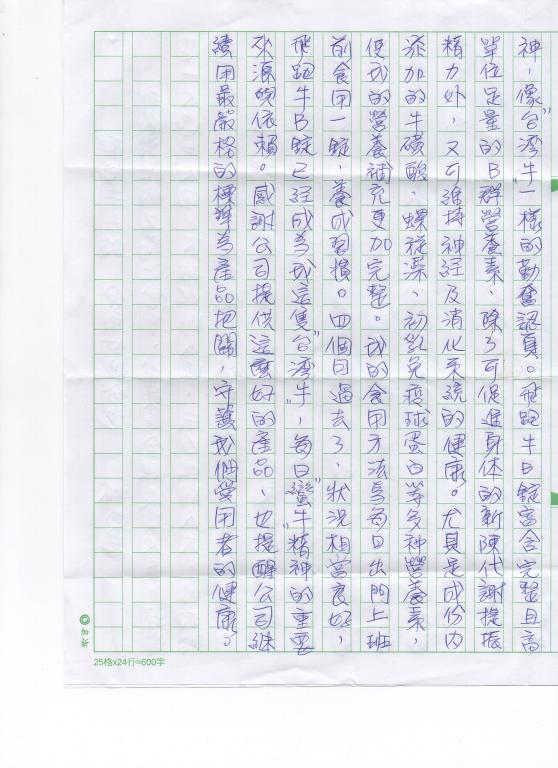 神，像“台灣牛”一樣的勤奮認真。飛跑牛B錠富含完整且高
單位足量的B群營養素、除了可促進身体的新陳代謝提振
精力外，又可維持神經及消化系統的健康。尤其是成份內
添加的牛磺酸、螺旋藻、初乳免疫球蛋白等多种營養素，
使我的營養補充更加完整。我的食用方法為每日出門上班
前食用一錠，養成習慣。四個月過去了，狀況相當良好，
飛跑牛B錠已經成為我這隻“台灣牛”，每日“蠻牛”精神的重要
來源與依賴。感謝公司提供這麼好的產品，也提醒公司継
續用最嚴格的標準為產品把關，守護我們愛用者的健康。
加新
25格x24行=600字